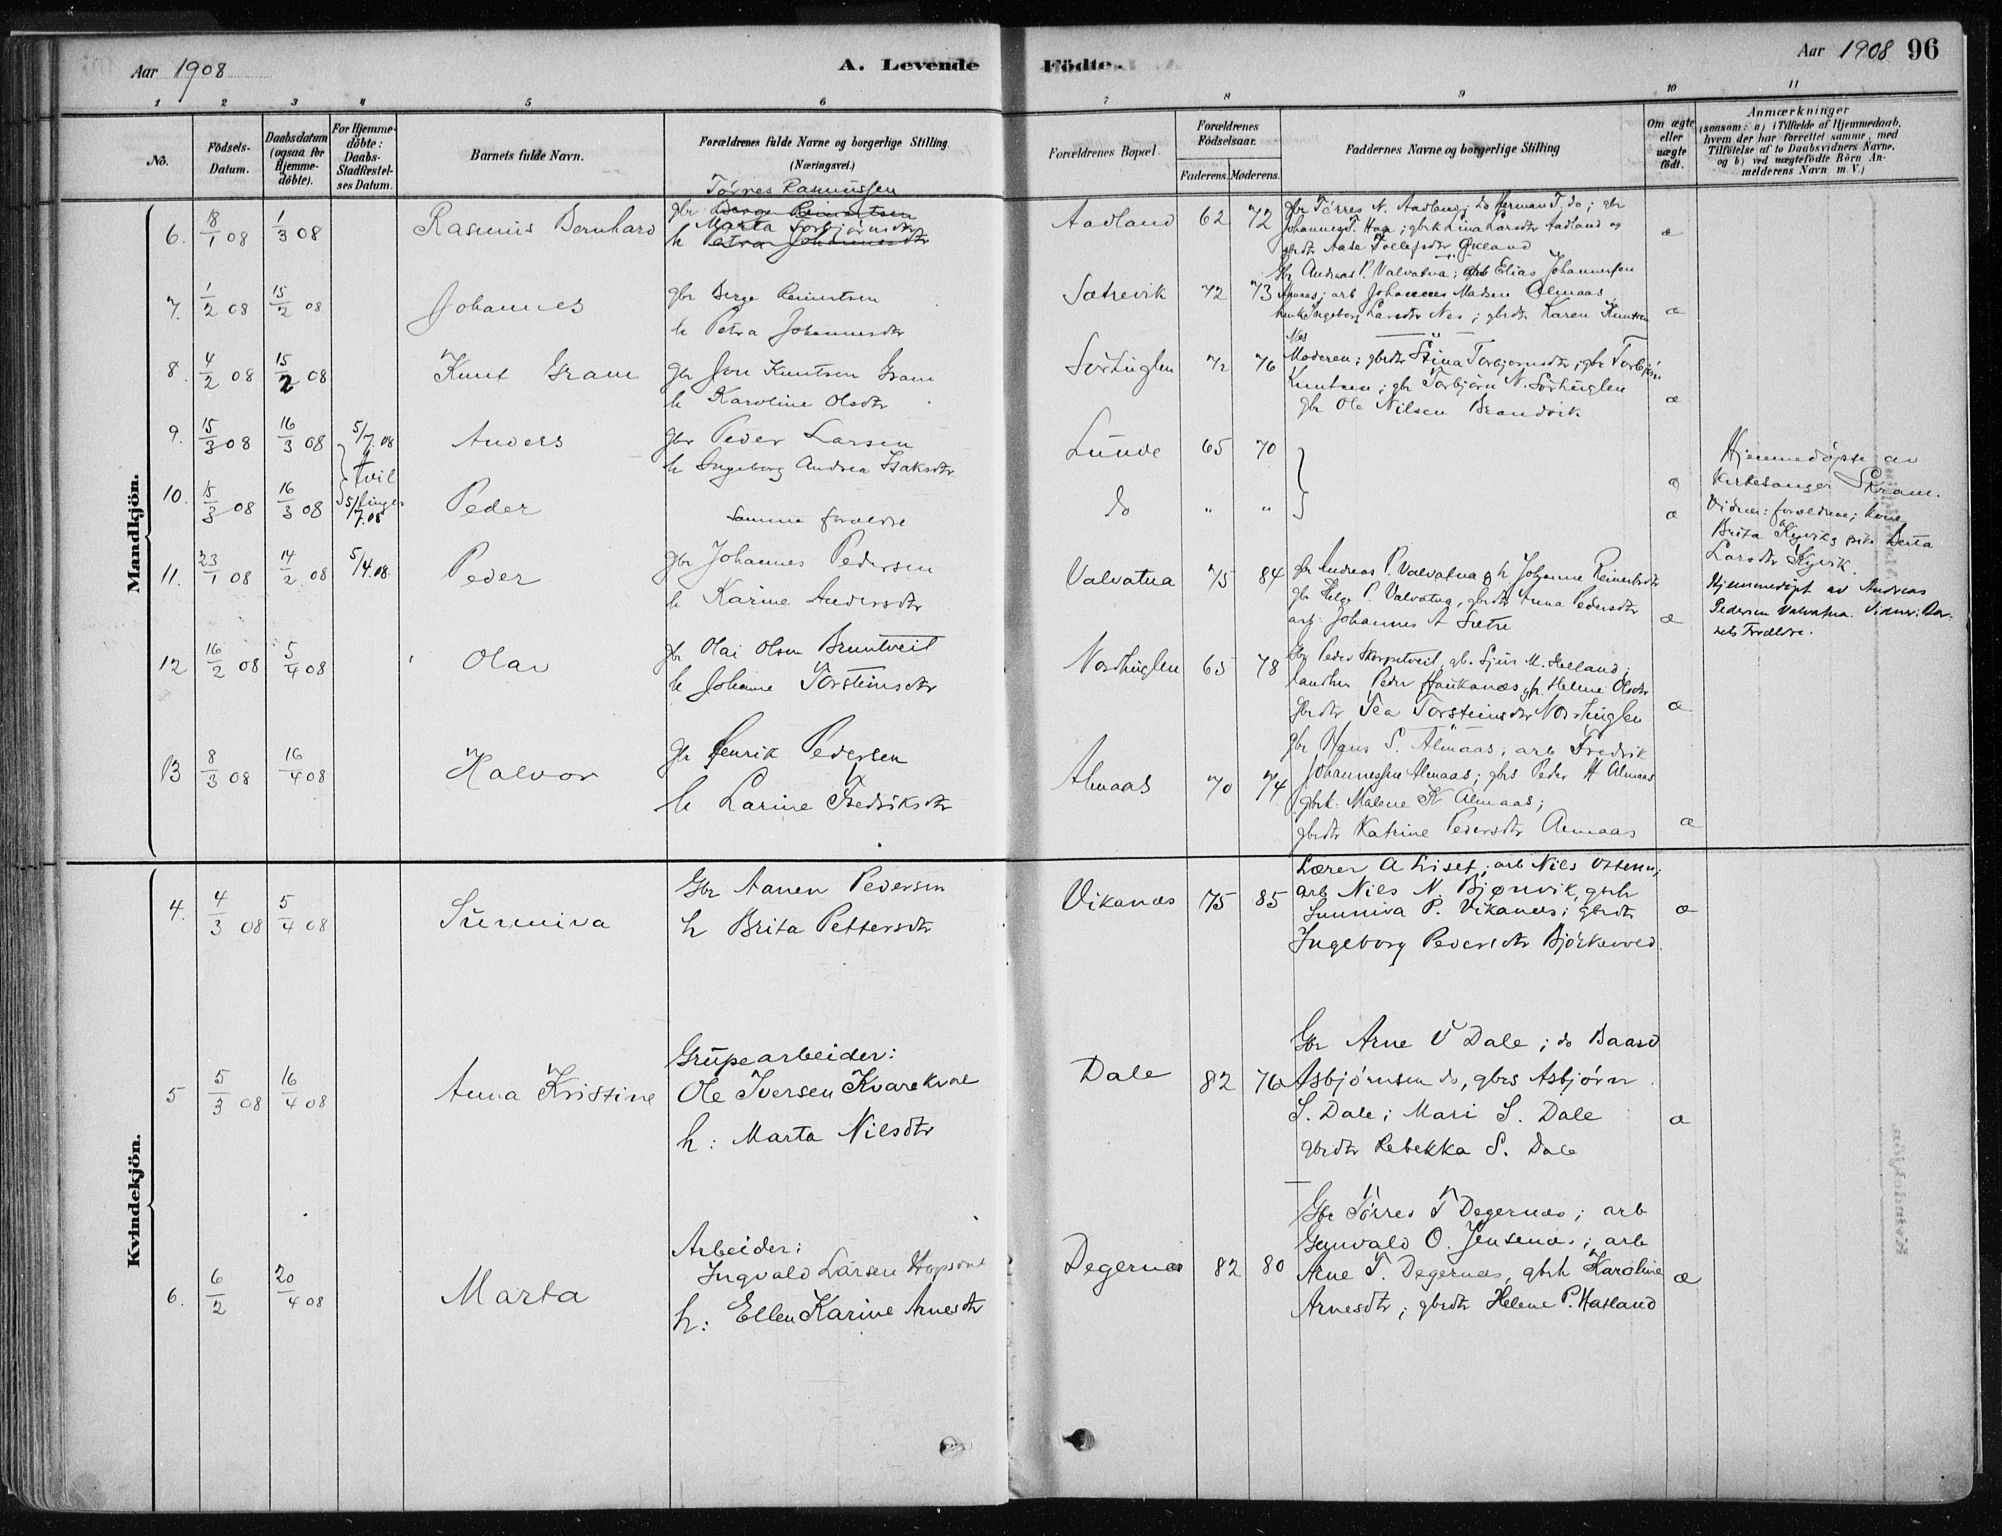 Aar 1908
A. Levende
Födte.
Aar 1908 96
1 2 3 4 5 6 7 8 9 10 11
No.
Födsels-
Datum.
Daabsdatum
(ogsaa for
Hjemme-
döbte).
For Hjemme-
döbte:
Daabs-
Stadfæstel-
ses Datum.
Barnets fulde Navn.
Forældrenes fulde Navne og borgerlige Stilling.
(Næringsvei.)
Forældrenes Bopæl.
Forældrenes
Födselsaar.
Faderens. Moderens.
Faddernes Navne og borgerlige Stilling
Om ægte
eller
uægte
födt.
Anmærkninger
(saasom: a) i Tilfælde af Hjemmedaab,
hvem der har forrettet samme, med
Tilföielse af to Daabsvidners Navne,
og b) ved uægtefödte Börn An-
melderens Navn m. V.)
Mandkjön.
6. 18/1 08 1/3 08 Rasmus Bernhard
Törres Rasmussen
gbr Berge Reinertsen
Marta Torbjörnsdtr
h Petra Johannesdtr
Aadland 62 72
gbr Törres N. Aadland; do Herman T. do; gbr
Johannes T. Haga; gbrk Lina Larsdtr Aadland og
gbrdtr Aasa Tollefsdtr Økland
æ
7. 1/2 08 15/2 08 Johannes
gbr Berge Reinertsen
h Petra Johannesdtr
Sætrevik 72 73
Gbr Andreas P. Valvatna; gbs Elias Johannessen
Almaas; arb Johannes Madsen Almaas
Ingeborg Larsdtr Nes; gbrdtr Karen Knutsen
Nes
æ
8. 4/2 08 15/2 08 Knut Gram
gbr Jon Knutsen Gram
h Karoline Olsdtr
Sörhuglen 72 76
Moderen; gbrdtr Stina Torbjörnsdtr; gbr Torbjörn
Knutsen; gbr Torbjörn N. Sörhuglen
gbr Ole Nilsen Brandvik
æ
9. 15/3 08 16/3 08 5/7.08 Anders
gbr Peder Larsen
h Ingeborg Andrea Isaksdtr
Lunde 65 70
æ
Tvil
linger
10. 15/3 08 16/3 08 5/7.08 Peder
Samme forældre
do " "
æ
Hjemmedöpte av
Kirkesanger Skram.
Vidner: forældrene; kone
Brita Kyvik Berta
Larsdtr Kyvik.
11. 23/1 08 14/2 08 5/4.08. Peder
gbr Johannes Pedersen
h Karine Andersdtr
Valvatna 75 84
gbr Andreas P. Valvatna og h Johanne Reinertsdtr
gbr Helge P. Valvatna, gbrdtr Anna Pedersdtr
arb. Johannes A Sætre
æ
Hjemmedöpt av Andreas
Pedersen Valvatna. Vidner: Bar-
nets Forældre.
12 16/2 08 5/4 08 Olai
gbr Olai Olsen Bruntveit
h Johanne Torsteinsdtr
Nordhuglen 65 78
Gbr Peder Skorpetveit, gb. Sjur M. Helland;
landhr Peder Haukanæs gk. Helene Olsdtr
gbrdtr Tea Torsteinsdtr Nordhuglen
æ
13 8/3 08 16/4 08 Halvor
gbr Henrik Pedersen
h Larine Fredriksdtr
Almaas 70 74
gbr Hans S. Almaas, arb Fredrik
Johannessen Almaas; gbrs Peder H Almaas
gbrk. Malene K Almaas;
gbrdtr Katrine Pedersdtr Almaas
æ
Kvindekjön.
4. 4/3 08 5/4 08 Sunniva
Gbr Aanen Pedersen
h Brita Pettersdtr
Vikanæs 75 85
Lærer A Liset; arb Nils Ottesen;
arb Nils N. Bjønvik, gbrk
Sunniva P. Vikanæs; gbrdtr
Ingeborg Pedersdtr Björkeved.
æ
5 5/3 08 16/4 08 Anna Kristine
Grubearbeider:
Ole Iversen Kvarekval
h: Marta Nilsdtr
Dale 82 76
Gbr Arne V Dale; do Baard
Asbjörnsen do, gbrs Asbjörn
S. Dale; Mari S. Dale
gbrdtr Rebekka S. Dale
æ
6. 6/2 20/4 08 Marta
Arbeider:
Ingvald Larsen Hopsdal
h: Ellen Karine Arnesdtr
Degernæs 82 80
Gbr Törres T Degernæs; arb
Gunvald O. Jensenæs; arb
Arne T. Degernæs, gbrk Karoline
Arnesdtr; gbrdtr Helene P. Hatland
æ